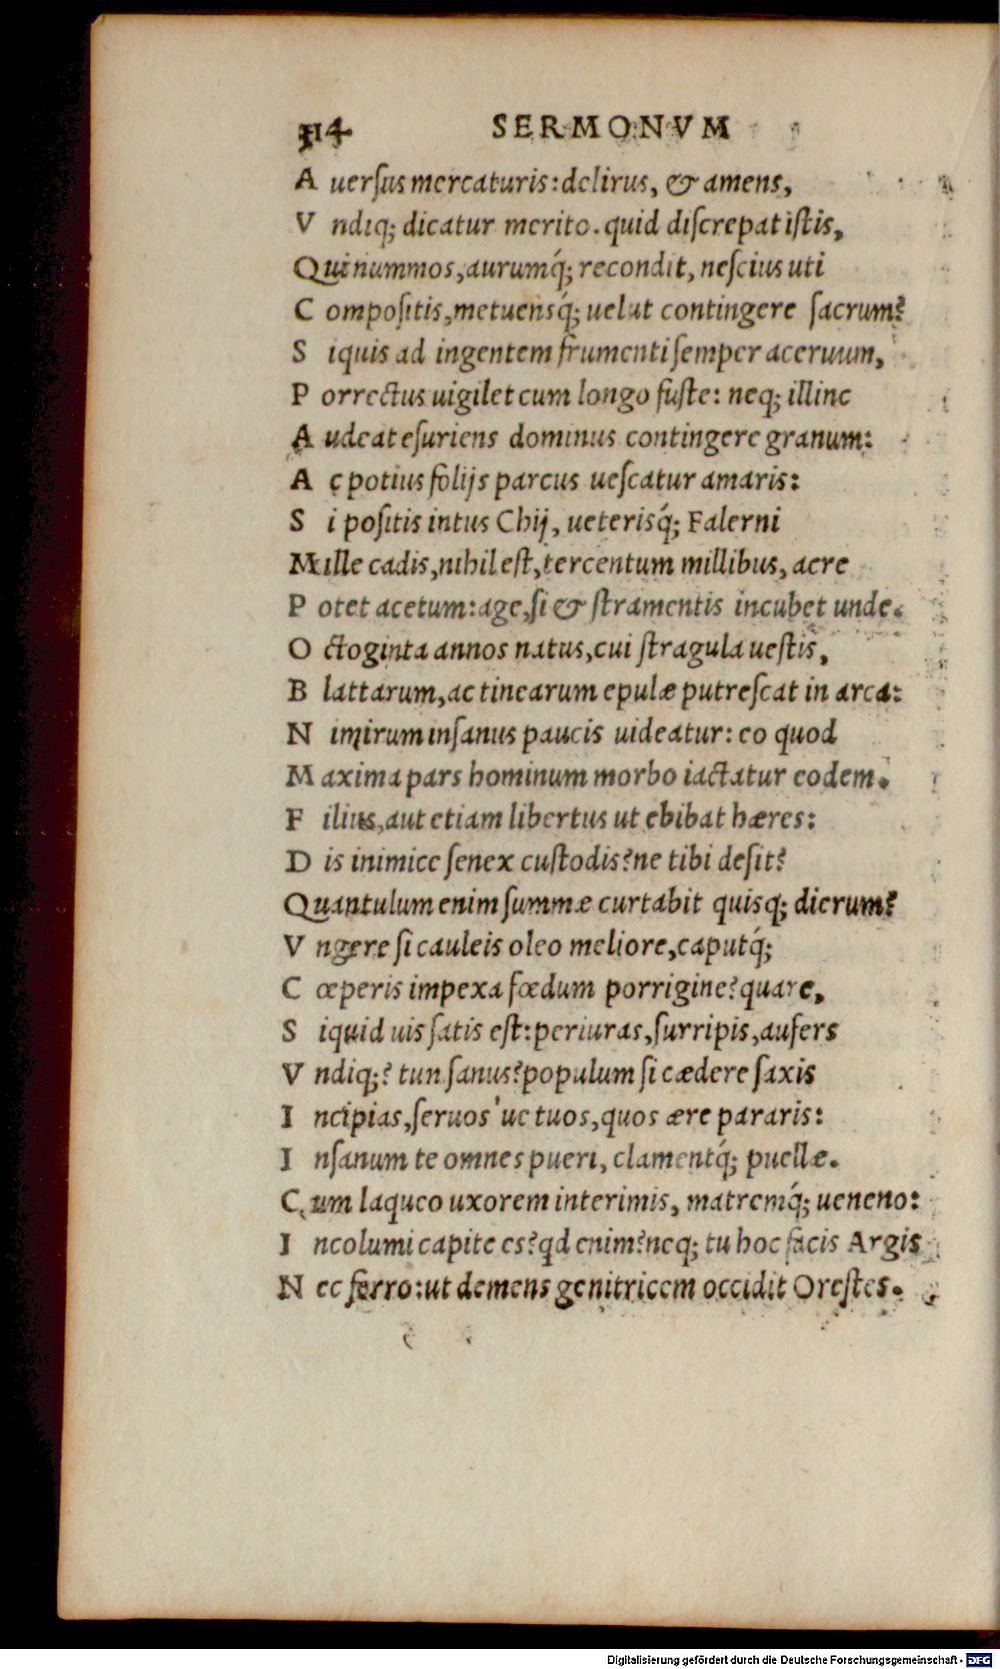 114 SERMONVM
A uersus mercaturis: delirus, & amens,
V ndiq; dicatur merito. quid discrepat istis,
Qui nummos, aurumq́; recondit, nescius uti
C ompositis, metuensq́; uelut contingere sacrum?
S iquis ad ingentem frumenti semper aceruum,
P orrectus uigilet cum longo fuste: neq; illinc
A udeat esuriens dominus contingere granum:
A c potius folijs parcus uescatur amaris:
S i positis intus Chij, ueterisq́; Falerni
M ille cadis, nihil est, tercentum millibus, acre
P otet acetum: age, si & stramentis incubet unde.
O ctoginta annos natus, cui stragula uestis,
B lattarum, ac tinearum epulæ putrescat in arca:
N imirum insanus paucis uideatur: eo quod
M axima pars hominum morbo iactatur eodem.
F ilius, aut etiam libertus ut ebibat hæres:
D is inimice senex custodis? ne tibi desit?
Quantulum enim summæ curtabit quisq; dierum?
V ngere si cauleis oleo meliore, caputq́;
C œperis impexa fœdum porrigine? quare,
S iquid uis satis est: periuras, surripis, aufers
V ndiq;? tun sanus? populum si cædere saxis
I ncipias, seruos'ue tuos, quos ære pararis:
I nsanum te omnes pueri, clamentq́; puellæ.
C um laqueo uxorem interimis, matremq́; ueneno:
I ncolumi capite es? qd enim? neq; tu hoc facis Argis
N ec ferro: ut demens genitricem occidit Orestes.
Digitalisierung gefördert durch die Deutsche Forschungsgemeinschaft - DFG